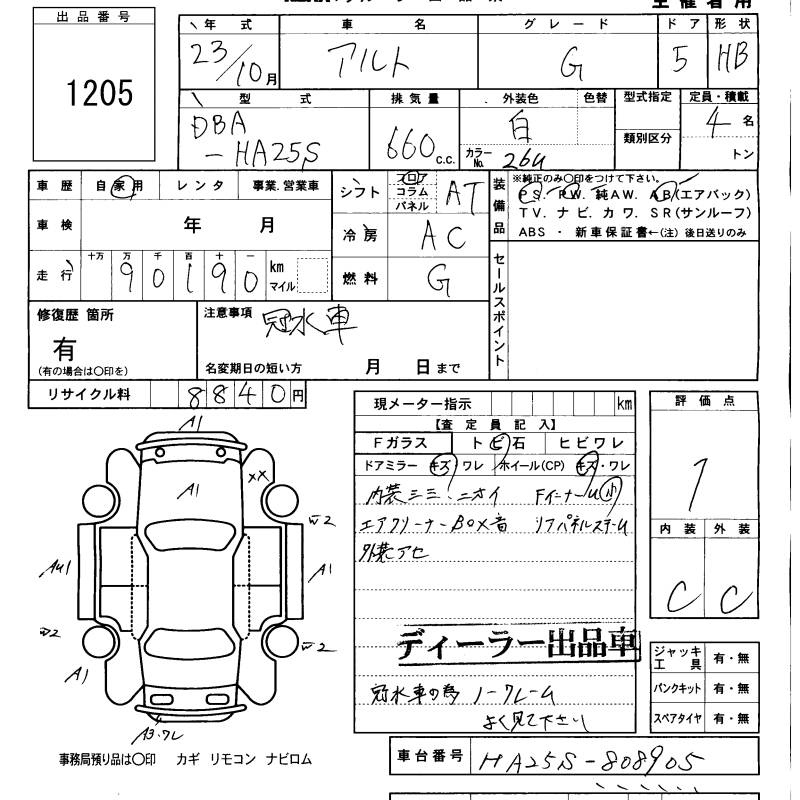 主催者用
出品番号
1205
年式 車名 グレード ドア 形状
23/10月 アルト G 5 HB
型式 排気量 外装色 色替 型式指定 定員・積載
DBA 白 4名
-HA25S 660c.c. カラーNo. 26U 類別区分 トン
車歴 自家用 レンタ 事業.営業車
車検 年 月
走行 十万 万 千 百 十 一
90190 km マイル
シフト フロア コラム パネル AT
冷房 AC
燃料 G
装備品 ※純正のみ〇印をつけて下さい。
PS. PW. 純AW. AB(エアバック)
TV. ナビ. カワ. SR(サンルーフ)
ABS ・ 新車保証書←(注)後日送りのみ
セールスポイント
修復歴 箇所
有
(有の場合は〇印を)
注意事項 冠水車
名変期日の短い方 月 日まで
リサイクル料 8840円
現メーター指示 km
【査定員記入】
Fガラス トビ石 ヒビワレ
ドアミラー キズ・ワレ ホイール(CP) キズ・ワレ
内装シミ.ニオイ FイーナーU小
エアクリーナーBOX音 リアパネルスチーム
外装アセ
ディーラー出品車
冠水車の為 ノークレーム
よく見て下さい
評価点
1
内装 外装
C C
ジャッキ工具 有・無
パンクキット 有・無
スペアタイヤ 有・無
A1
A1
XX
W2
AU1
A1
W2
W2
A1
A3.ワレ
事務局預り品は〇印 カギ リモコン ナビロム
車台番号 HA25S-808905